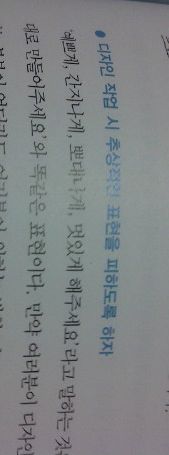 ● 디자인 작업 시 추상적인 표현을 피하도록 하자
'예쁘게, 간지나게, 뽀대나게, 멋있게 해주세요'라고 말하는 것
대로 만들어주세요'와 똑같은 표현이다. 만약 여러분이 디자인